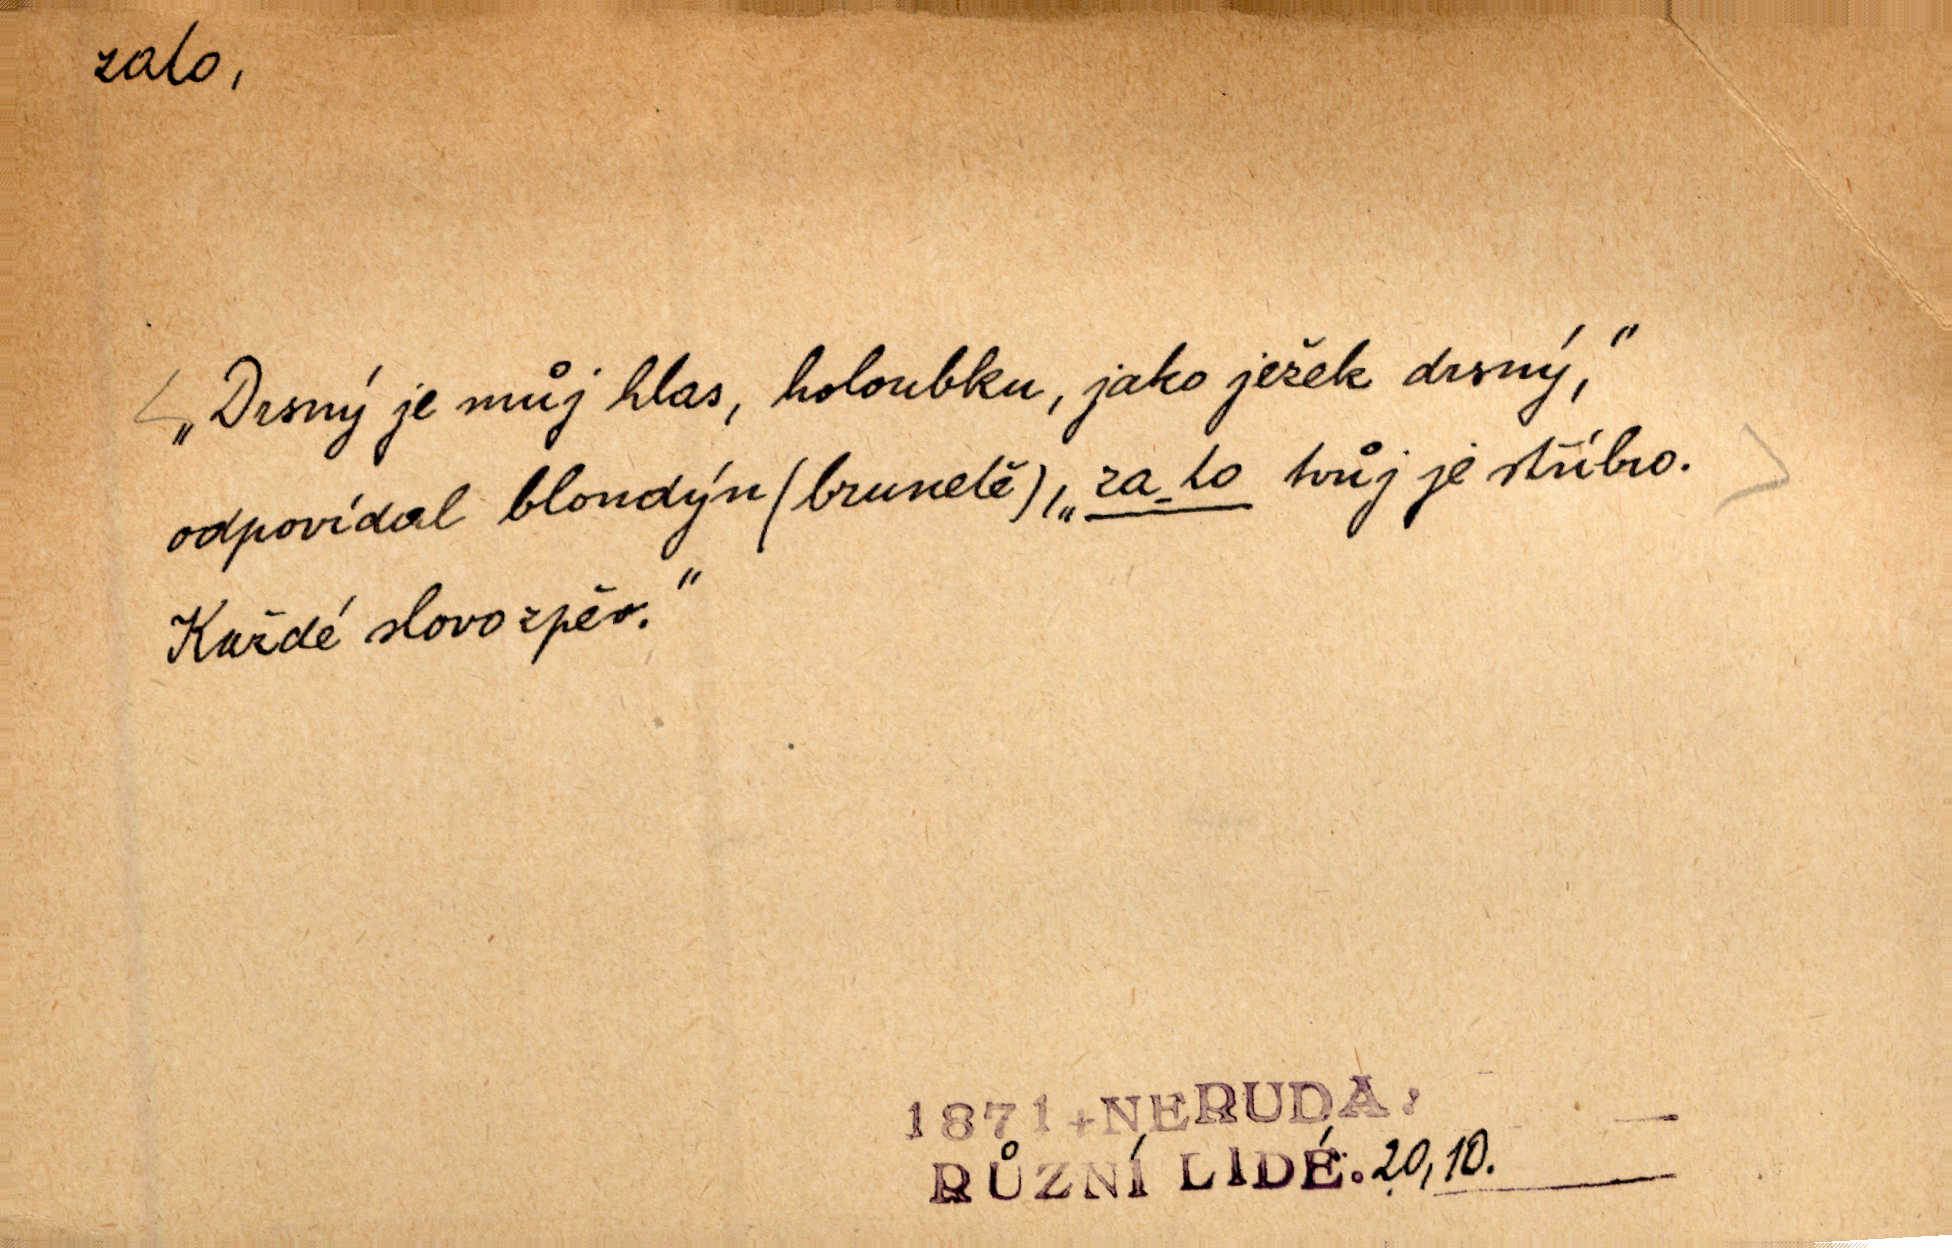 zato,
„Drsný je můj hlas, holoubku, jako ježek drsný,“
odpovídal blondýn (brunetě), „za to tvůj je stříbro.
Každé slovo zpěv.“
1871 + NERUDA:
RŮZNÍ LIDÉ. 20, 10.